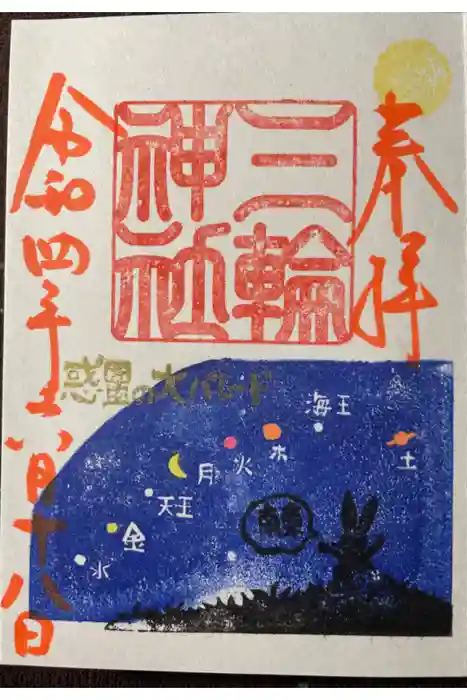 奉拝
三輪
神社
令和四年六月十八日
惑星の大パレード
海王
土
木
火
月
天王
金
水